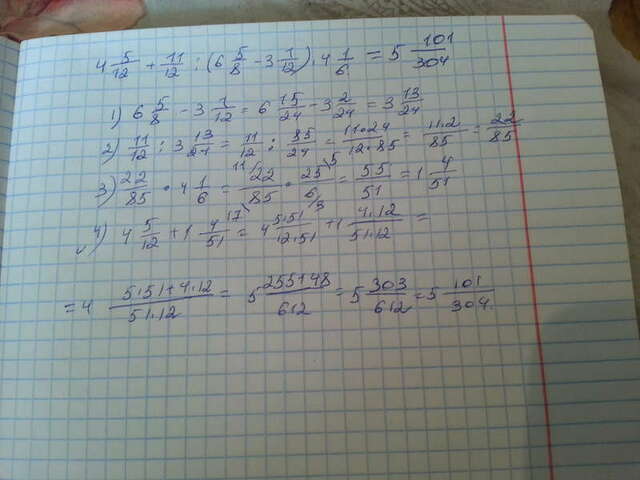 4 5/12 + 11/12 : (6 5/8 - 3 1/12) · 4 1/6 = 5 101/304
1) 6 5/8 - 3 1/12 = 6 15/24 - 3 2/24 = 3 13/24
2) 11/12 : 3 13/24 = 11/12 : 85/24 = 11·24/12·85 = 11·2/85 = 22/85
3) 22/85 · 4 1/6 = 11 22/85 17 · 25 5/6 3 = 55/51 = 1 4/51
4) 4 5/12 + 1 4/51 = 4 5·51/12·51 + 1 4·12/51·12 =
= 4 5·51+4·12/51·12 = 5 255+48/612 = 5 303/612 = 5 101/304